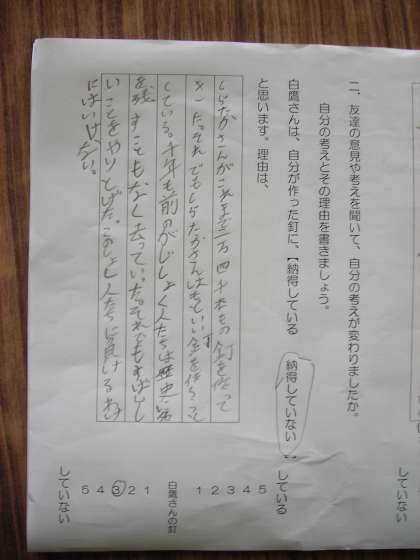 二、友達の意見や考えを聞いて、自分の考えが変わりましたか。
自分の考えとその理由を書きましょう。
白鷹さんは、自分が作った釘に、【納得している　納得していない
と思います。理由は、
しらたかさんがこれまで二万四千本もの釘を作って
きた。それでもしらたかさんはもっといい釘を作ろうと
している。千年も前のかじしょく人たちは歴史に名
を残すこともなく去っていった。それでもすばらし
いことをやりとげた。しょく人たちに負けるわけ
にはいけない。
している
5 4 3 2 1
白鷹さんの釘
1 2 3 4 5
していない
していない